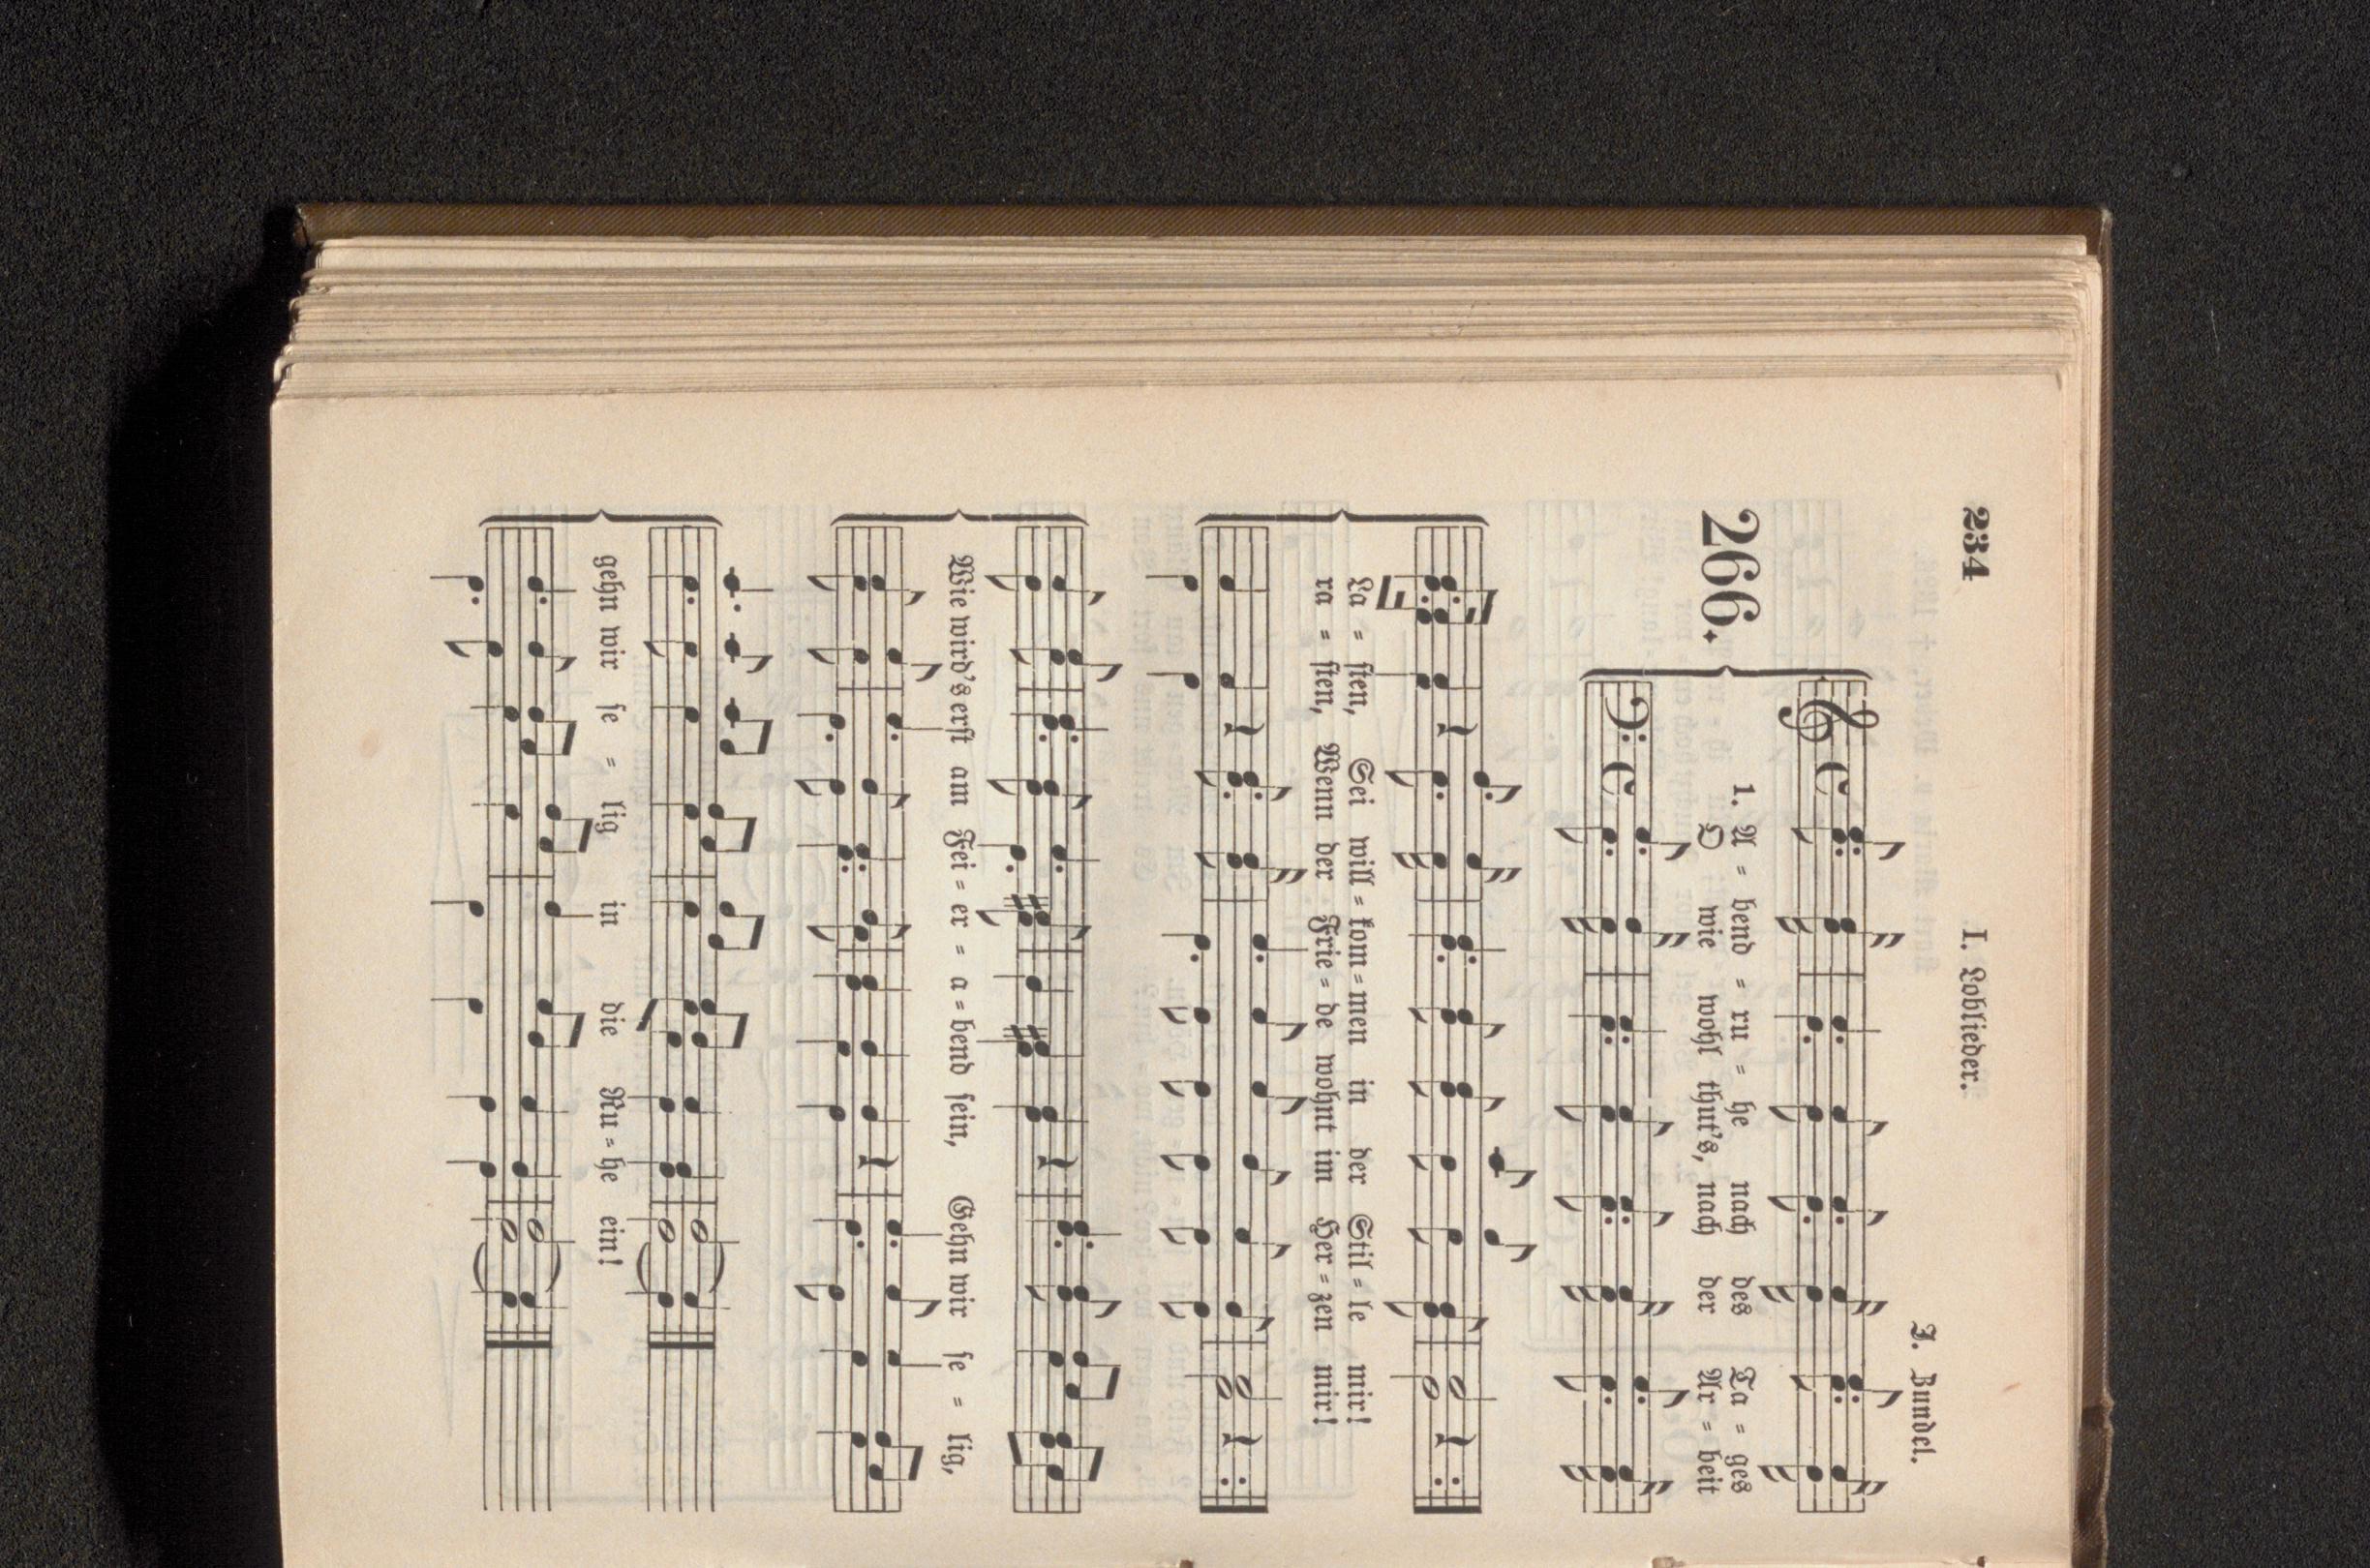 234
I. Loblieder.
J. Zundel.
266.
1. A = bend = ru = he nach des Ta = ges
O wie wohl thut's, nach der Ar = beit
La = sten, Sei will = kom = men in der Stil = le mir!
ra = sten, Wenn der Frie = de wohnt im Her = zen mir!
Wie wird's erst am Fei = er = a = bend sein, Gehn wir se = lig,
gehn wir se = lig in die Ru = he ein!